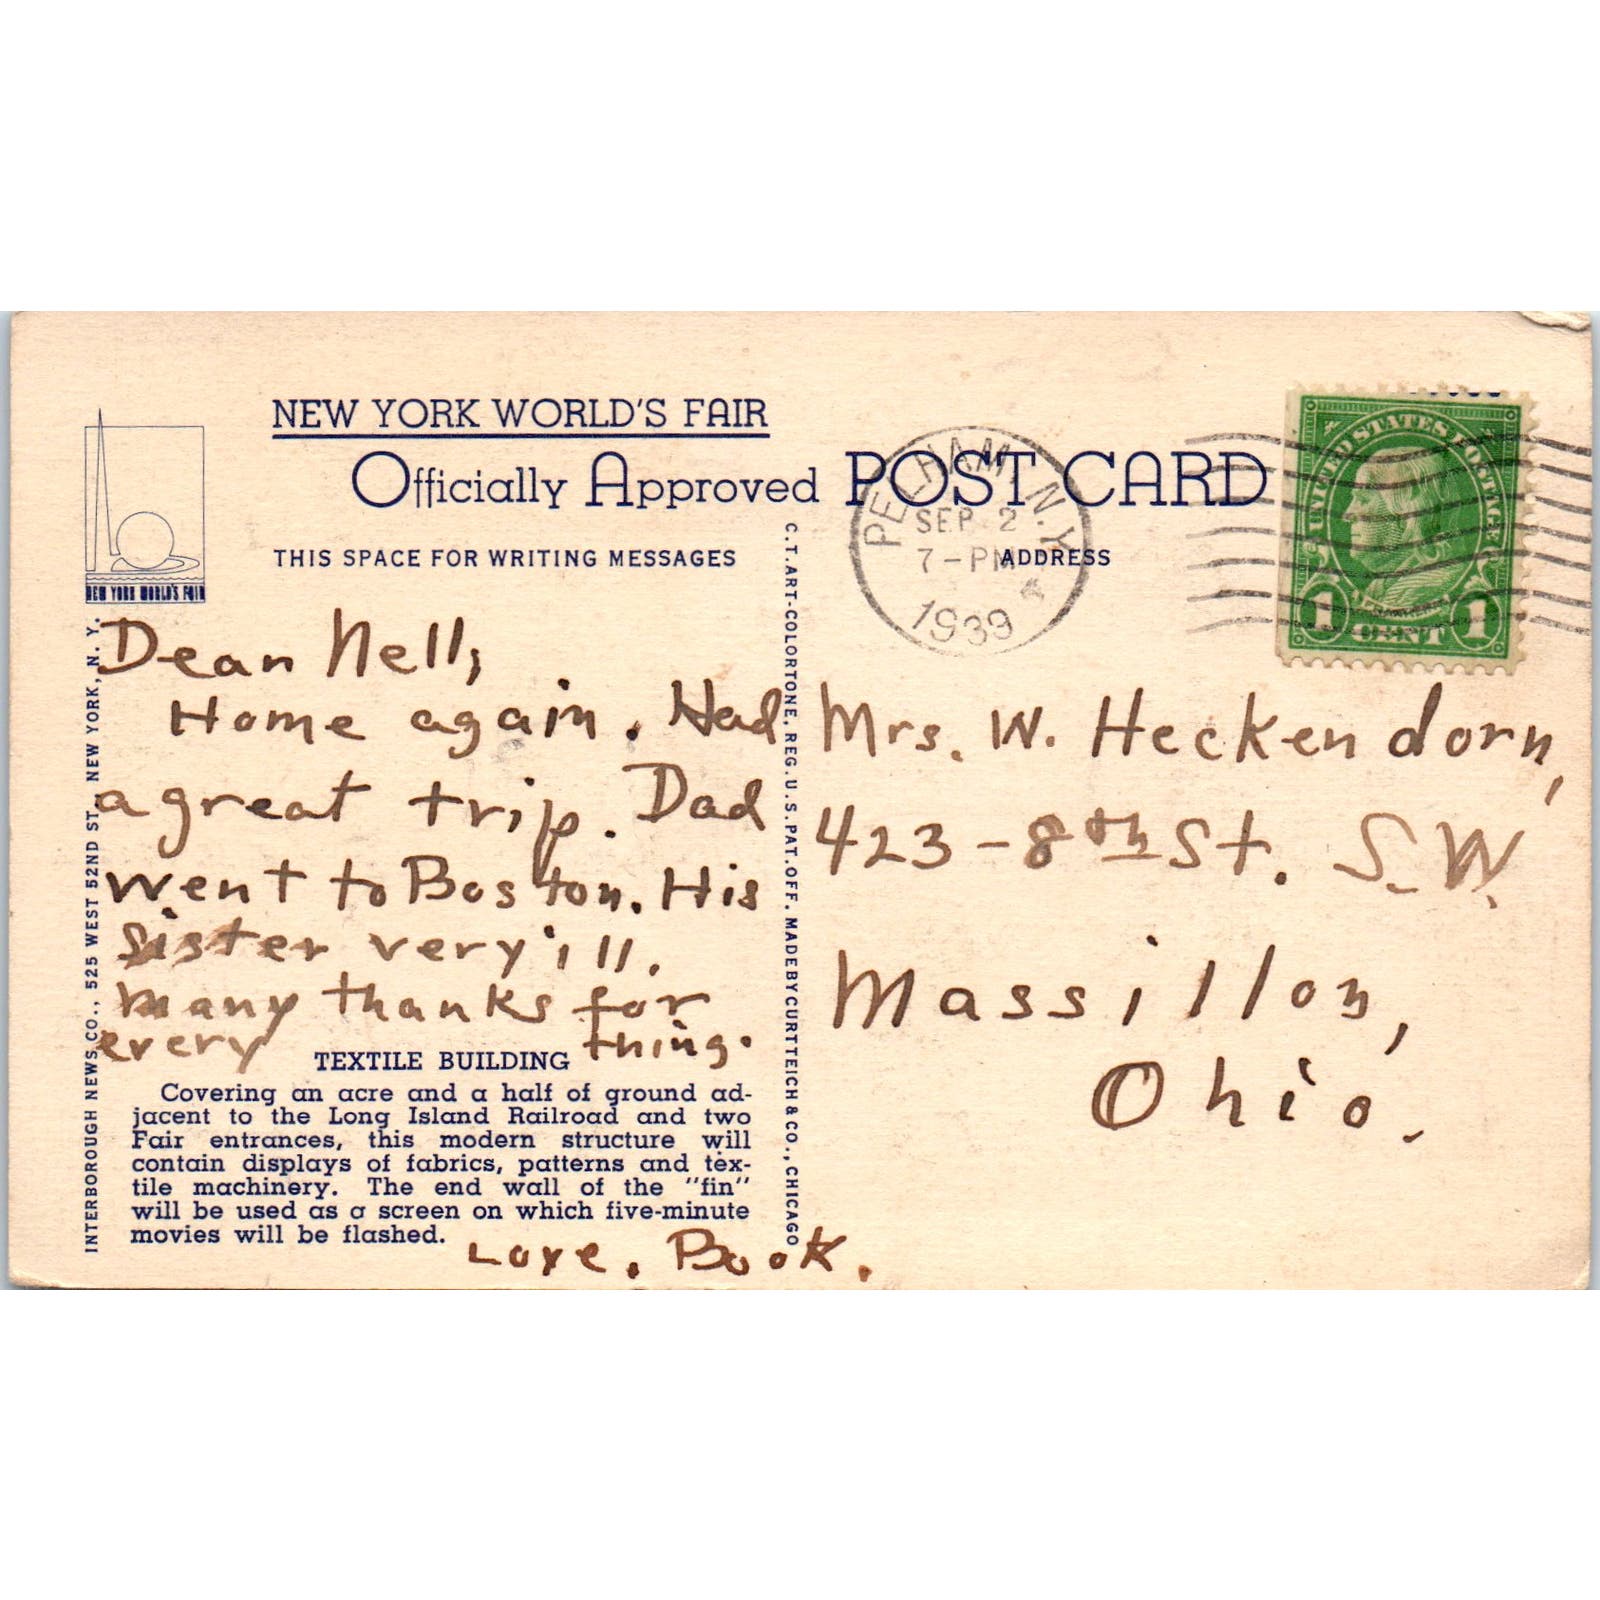 NEW YORK WORLD'S FAIR
Officially Approved POST CARD
THIS SPACE FOR WRITING MESSAGES
ADDRESS
NEW YORK WORLD'S FAIR
PELHAM, N.Y.
SEP 2
7-PM
1939
UNITED STATES POSTAGE
FRANKLIN
1 CENT 1
Dear Nell,
Home again. Had
a great trip. Dad
went to Boston. His
sister very ill.
Many thanks for
every thing.
TEXTILE BUILDING
Covering an acre and a half of ground ad-
jacent to the Long Island Railroad and two
Fair entrances, this modern structure will
contain displays of fabrics, patterns and tex-
tile machinery. The end wall of the "fin"
will be used as a screen on which five-minute
movies will be flashed.
Love. Book.
INTERBOROUGH NEWS CO., 525 WEST 52ND ST., NEW YORK, N. Y.
C.T. ART-COLORTONE, REG. U.S. PAT. OFF. MADE BY CURT TEICH & CO., CHICAGO
Mrs. W. Heckendorn,
423-8th St. S.W.
Massillon,
Ohio.